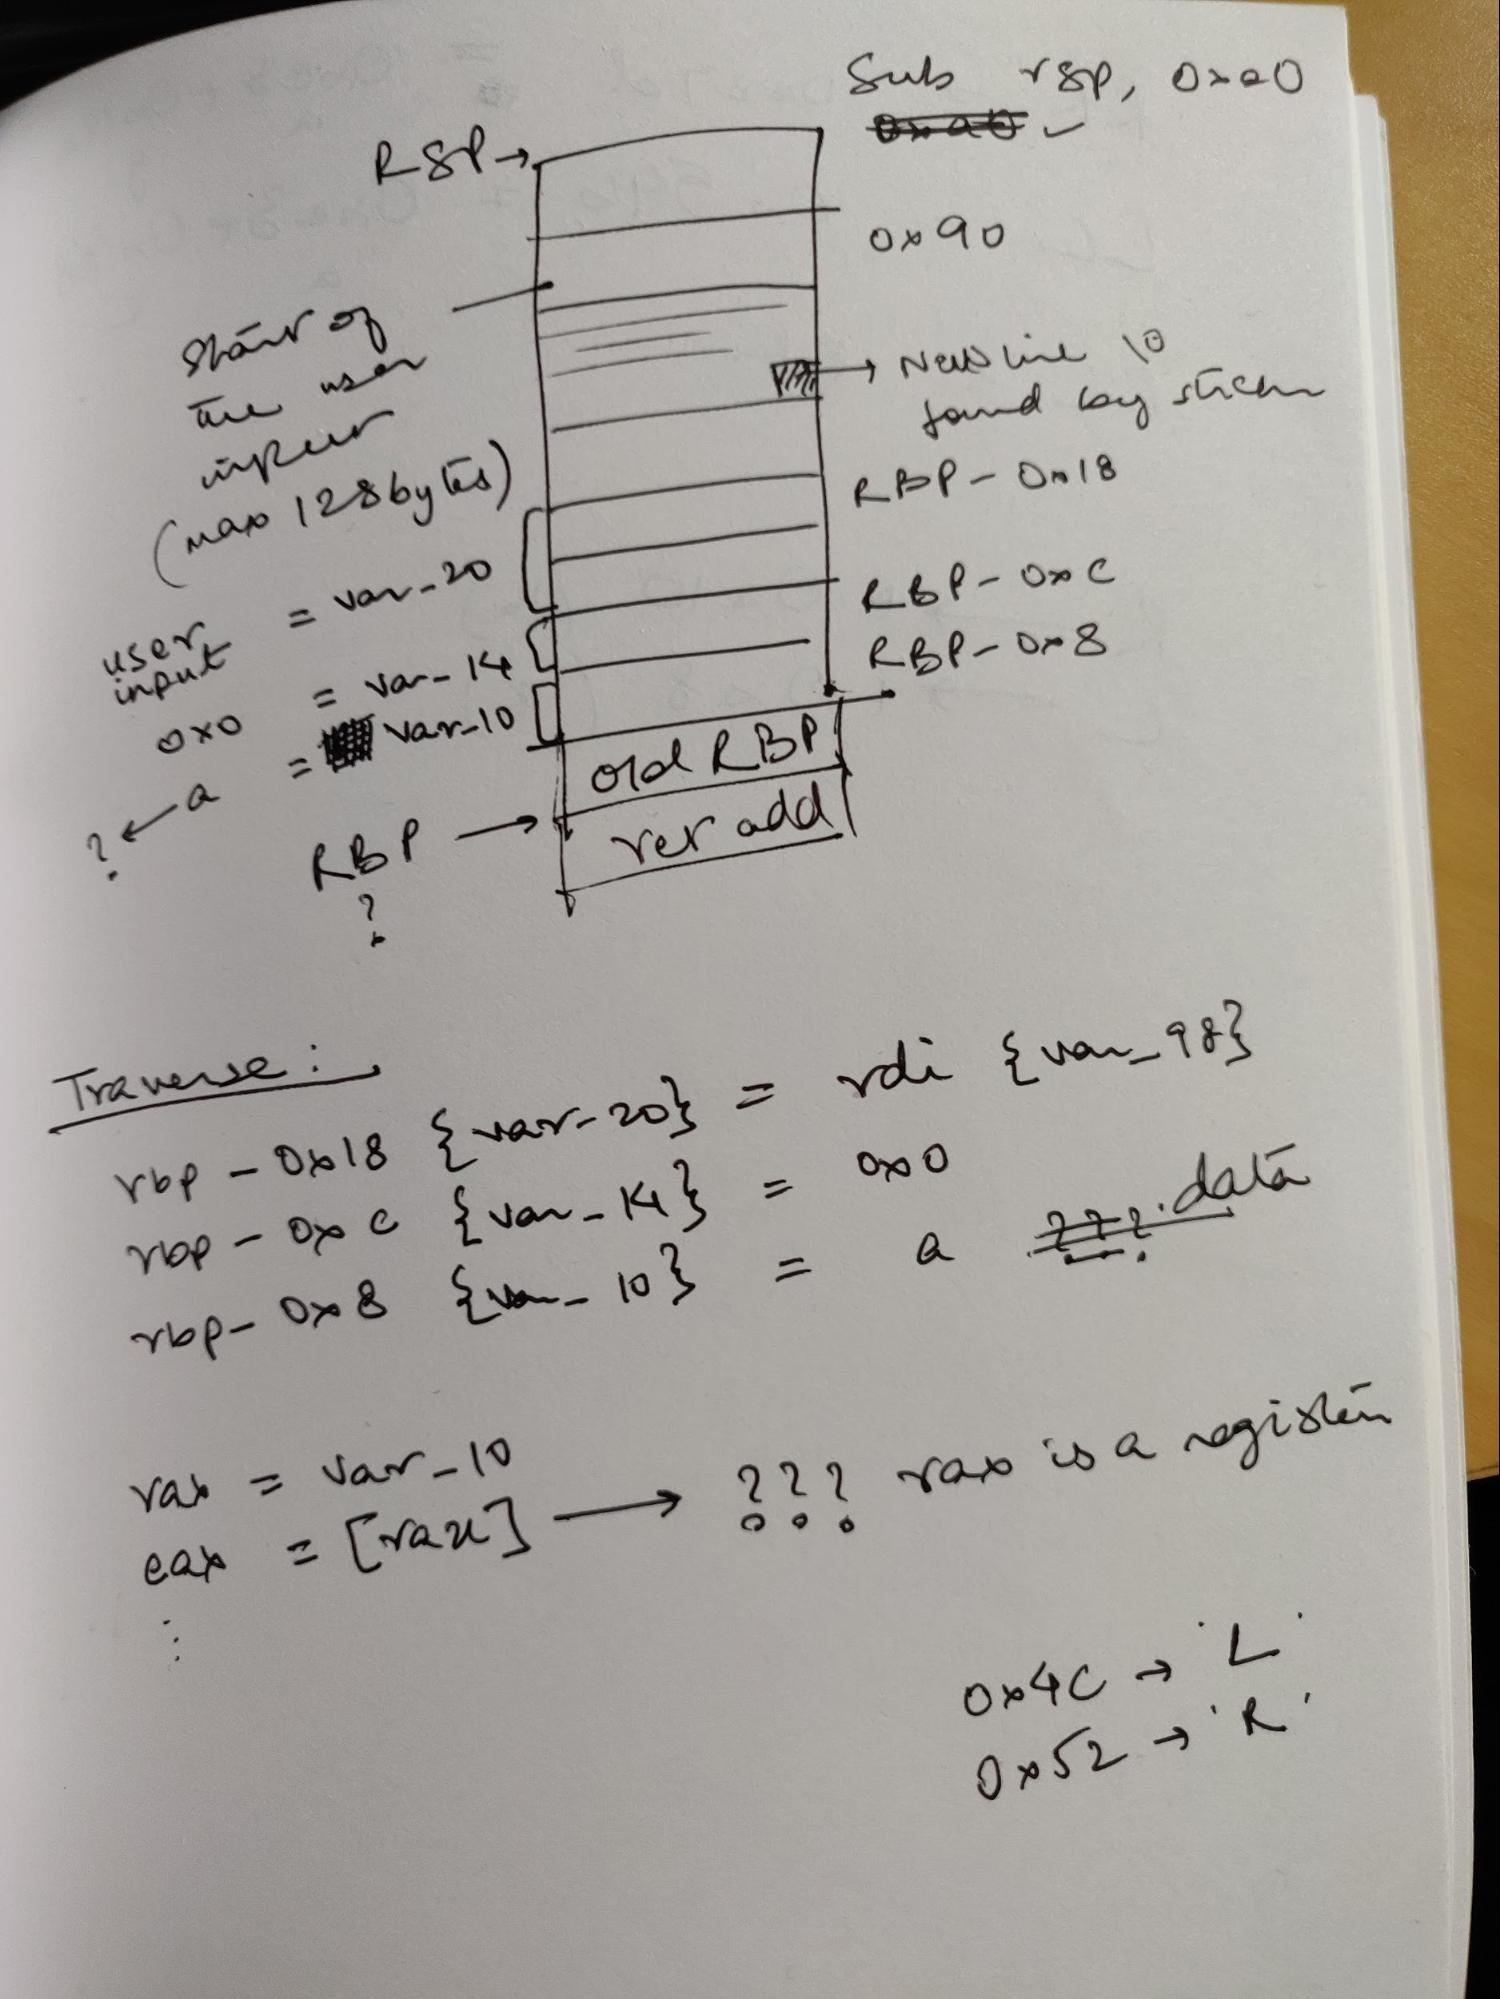 Sub rsp, 0xa0
0xa0 ✓
RSP →
0x90
Start of
the user
input
(max 128 bytes)
→ Newline 10
found by
RBP - 0x18
user input = var_20
RBP - 0xC
0x0 = var_14
RBP - 0x8
? ← a = var_10
old RBP
RBP →
?
ret add
Traverse:
rbp - 0x18 {var_20} = rdi {var_98}
rbp - 0xc {var_14} = 0x0
rbp - 0x8 {var_10} = a ??? .data
rax = var_10
eax = [rax] → ??? rax is a register
⋮
0x4C → 'L'
0x52 → 'R'